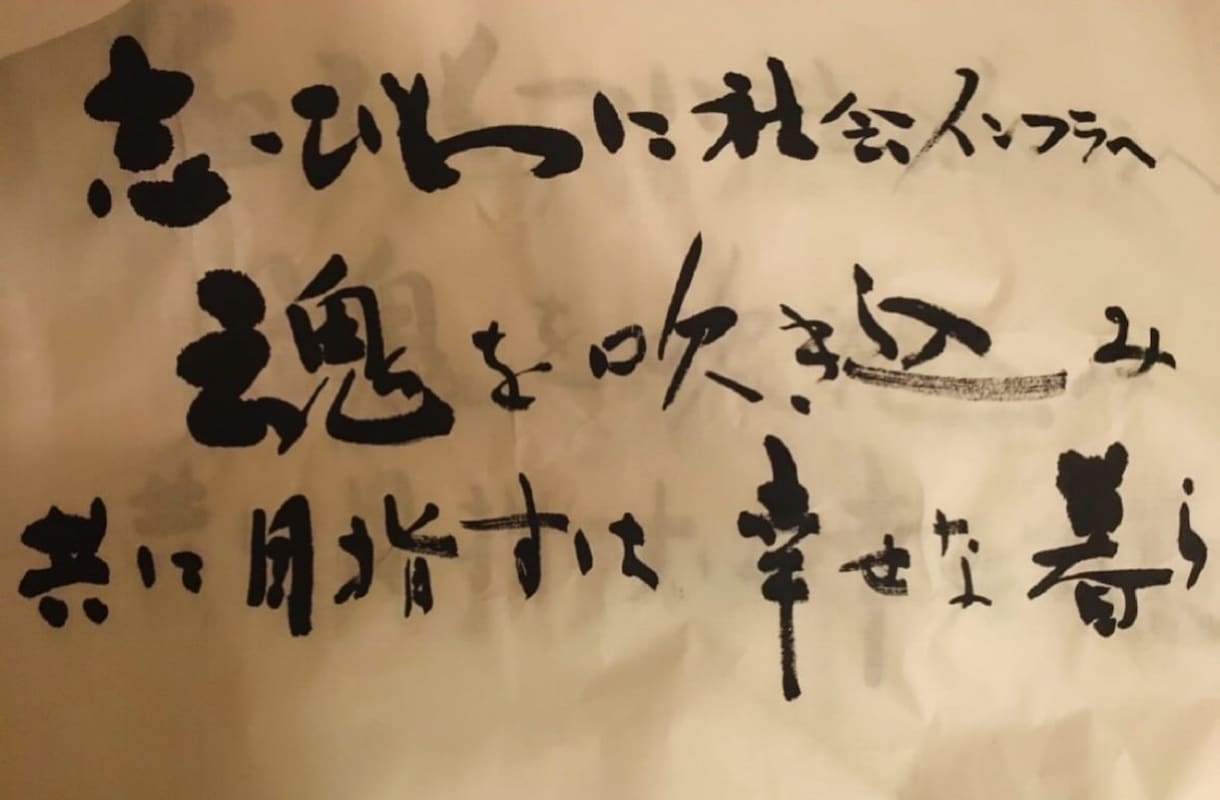 志ひとつに社会インフラへ
魂を吹き込み
共に目指すは幸せな暮ら